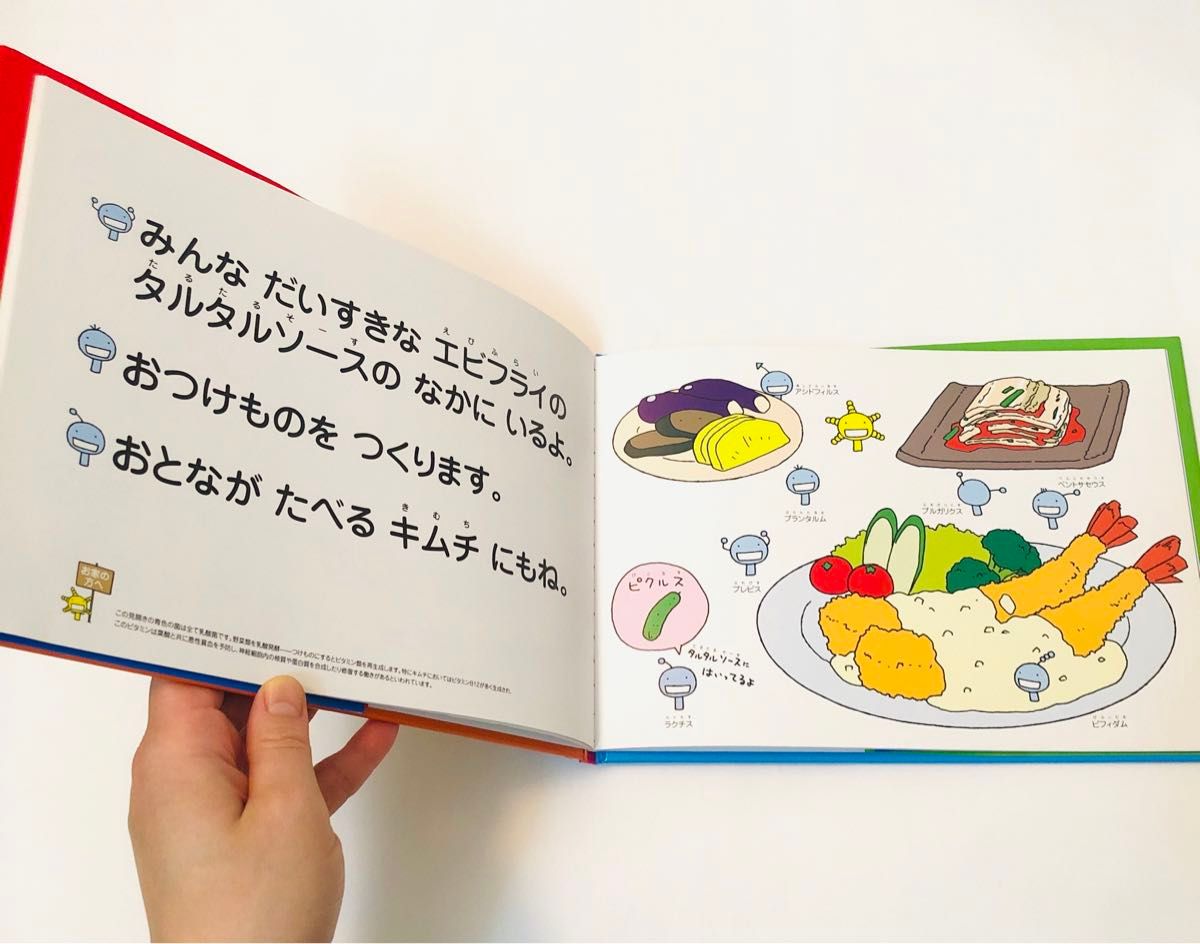 みんな だいすきな エビフライの
タルタルソースの なかに いるよ。
おつけものを つくります。
おとなが たべる キムチ にもね。
お家の
方へ
この見開きの青色の菌は全て乳酸菌です。野菜類を乳酸発酵——つけものにするとビタミン類を再生成します。特にキムチにおいてはビタミンB12が多く生成され、
このビタミンは葉酸と共に悪性貧血を予防し、神経細胞内の核酸や蛋白質を合成したり修復する働きがあるといわれています。
アシドフィルス
プランタルム
ブルガリクス
ペントサセウス
ブレビス
ピクルス
タルタルソースに
はいってるよ
ラクチス
ビフィダム